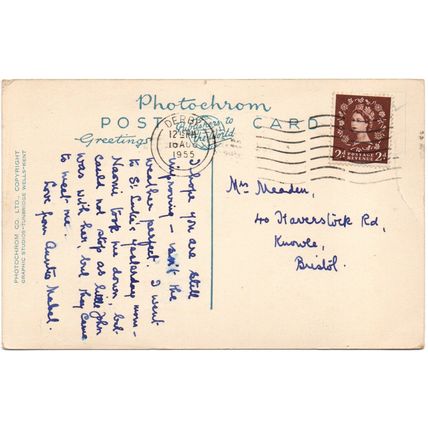 Photochrom
POST CARD
Greetings to
DERBY
16 AUG
1955
POSTAGE
REVENUE
2D 2D
PHOTOCHROM CO. LTD., COPYRIGHT
GRAPHIC STUDIOS-TUNBRIDGE WELLS-KENT
I hope you are still
improving – isn't the
weather perfect. I went
to St. Luke's yesterday
Naomi took me down, but
could not stop as little John
was with her, but they came
to meet me.
Love from Auntie Mabel.
Mrs Meaden,
40 Haverstock Rd,
Knowle,
Bristol.